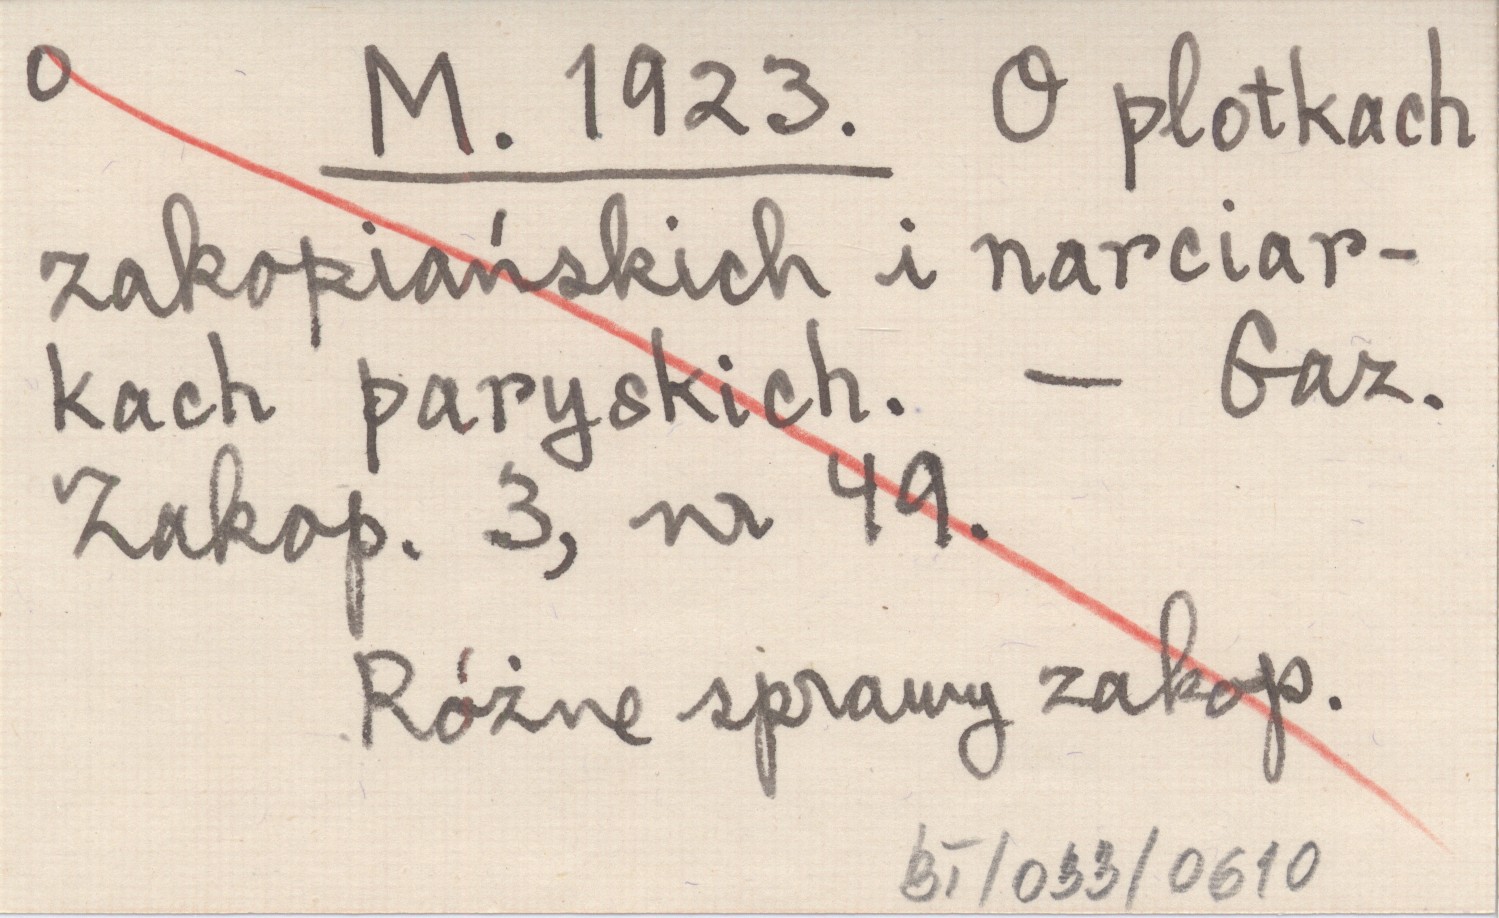 O M. 1923. O plotkach
zakopiańskich i narciar-
kach paryskich. — Gaz.
Zakop. 3, nr 49.
Różne sprawy zakop.
BI/033/0610